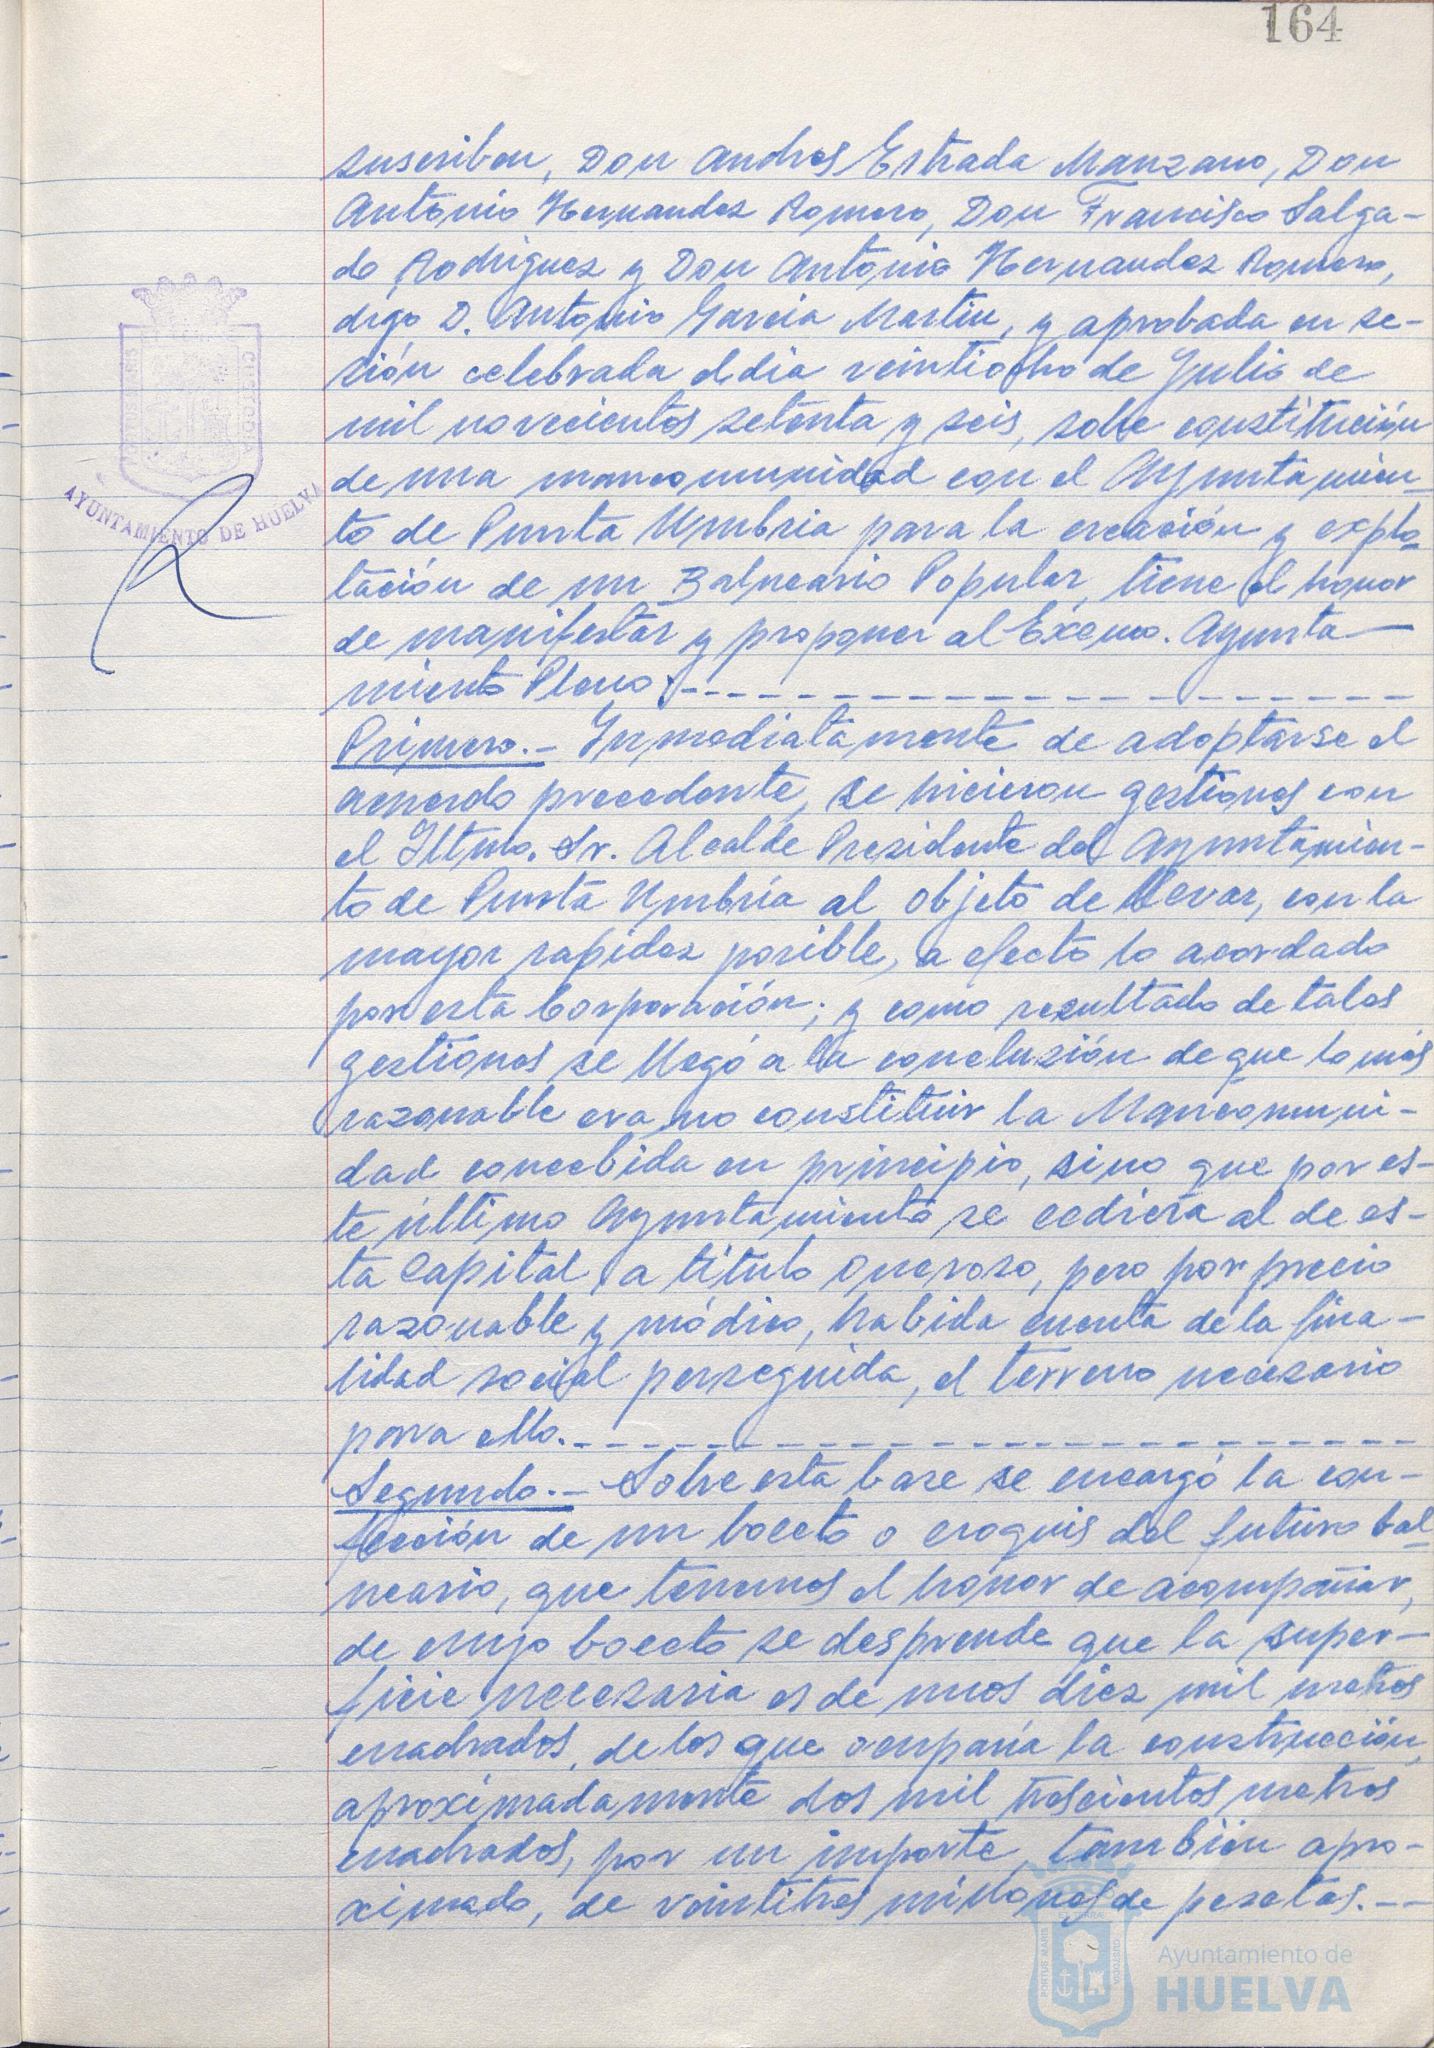 164
suscriben, Don Andres Estrada Manzano, Don
Antonio Hernandez Romero, Don Francisco Salga-
do Rodriguez y Don Antonio Hernandez Romero,
digo D. Antonio Garcia Martin, y aprobada en se-
sión celebrada el dia veintiocho de Julio de
mil novecientos setenta y seis, sobre constitución
de una mancomunidad con el Ayuntamien-
to de Punta Umbria para la creación y explo-
tación de un Balneario Popular, tiene el honor
de manifestar y proponer al Excmo. Ayunta-
miento Pleno:
Primero.- Inmediatamente de adoptarse el
acuerdo precedente, se hicieron gestiones con
el Iltmo. Sr. Alcalde Presidente del Ayuntamien-
to de Punta Umbría al objeto de llevar, con la
mayor rapidez posible, a efecto lo acordado
por esta Corporación; y como resultado de tales
gestiones se llegó a la conclusión de que lo más
razonable era no constituir la Mancomuni-
dad concebida en principio, sino que por es-
te último Ayuntamiento se cediera al de es-
ta Capital, a título oneroso, pero por precio
razonable y módico, habida cuenta de la fina-
lidad social perseguida, el terreno necesario
para ello.
Segundo.- Sobre esta base se encargó la con-
fección de un boceto o croquis del futuro bal-
neario, que tenemos el honor de acompañar,
de cuyo boceto se desprende que la super-
ficie necesaria es de unos diez mil metros
cuadrados, de los que ocuparía la construcción,
aproximadamente dos mil trescientos metros
cuadrados, por un importe, también apro-
ximado, de veintitres millones de pesetas.--
PORTUS MARIS
CUSTODIA
AYUNTAMIENTO DE HUELVA
PORTUS MARIS
CUSTODIA
Ayuntamiento de
HUELVA